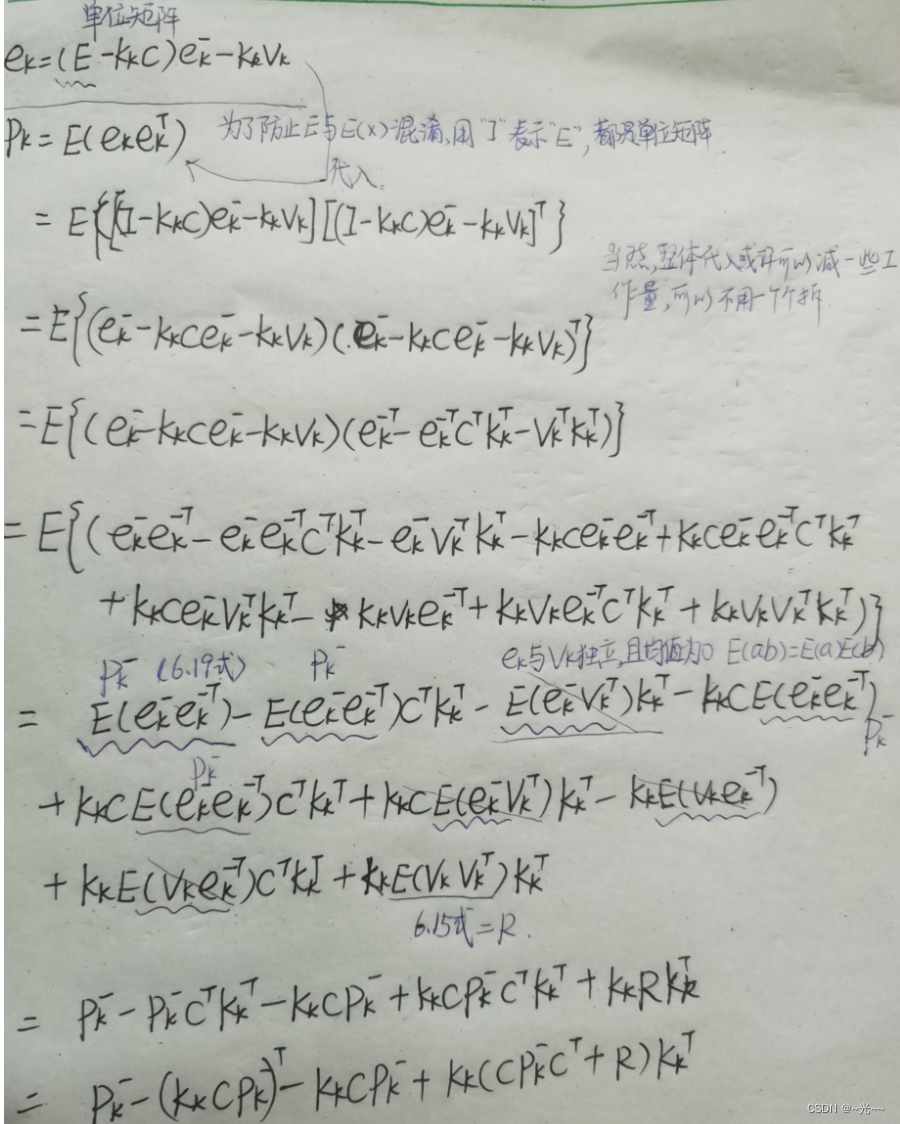 单位矩阵
eₖ=(E-kₖC)eₖ⁻-kₖVₖ
Pₖ=E(eₖeₖᵀ) 为了防止E与E(x)混淆,用"I"表示"E",都是单位矩阵
代入
=E{[(I-kₖC)eₖ⁻-kₖVₖ][(I-kₖC)eₖ⁻-kₖVₖ]ᵀ}
当然,整体代入或许可以减一些工
作量,可以不用一个个拆.
=E{(eₖ⁻-kₖCeₖ⁻-kₖVₖ)(eₖ⁻-kₖCeₖ⁻-kₖVₖ)ᵀ}
=E{(eₖ⁻-kₖCeₖ⁻-kₖVₖ)(eₖ⁻ᵀ-eₖ⁻ᵀCᵀkₖᵀ-Vₖᵀkₖᵀ)}
=E{(eₖ⁻eₖ⁻ᵀ-eₖ⁻eₖ⁻ᵀCᵀkₖᵀ-eₖ⁻Vₖᵀkₖᵀ-kₖCeₖ⁻eₖ⁻ᵀ+kₖCeₖ⁻eₖ⁻ᵀCᵀkₖᵀ
+kₖCeₖ⁻Vₖᵀkₖᵀ-kₖVₖeₖ⁻ᵀ+kₖVₖeₖ⁻ᵀCᵀkₖᵀ+kₖVₖVₖᵀkₖᵀ)}
Pₖ⁻ (6.19式) Pₖ⁻ eₖ与Vₖ独立,且均值为0 E(ab)=E(a)E(b)
= E(eₖ⁻eₖ⁻ᵀ)-E(eₖ⁻eₖ⁻ᵀ)Cᵀkₖᵀ-E(eₖ⁻Vₖᵀ)kₖᵀ-kₖCE(eₖ⁻eₖ⁻ᵀ)
Pₖ⁻
Pₖ⁻
+kₖCE(eₖ⁻eₖ⁻ᵀ)Cᵀkₖᵀ+kₖCE(eₖ⁻Vₖᵀ)kₖᵀ-kₖE(Vₖeₖ⁻ᵀ)
+kₖE(Vₖeₖ⁻ᵀ)Cᵀkₖᵀ+kₖE(VₖVₖᵀ)kₖᵀ
6.15式=R.
= Pₖ⁻-Pₖ⁻Cᵀkₖᵀ-kₖCPₖ⁻+kₖCPₖ⁻Cᵀkₖᵀ+kₖRkₖᵀ
= Pₖ⁻-(kₖCPₖ⁻)ᵀ-kₖCPₖ⁻+kₖ(CPₖ⁻Cᵀ+R)kₖᵀ
CSDN @~光~~